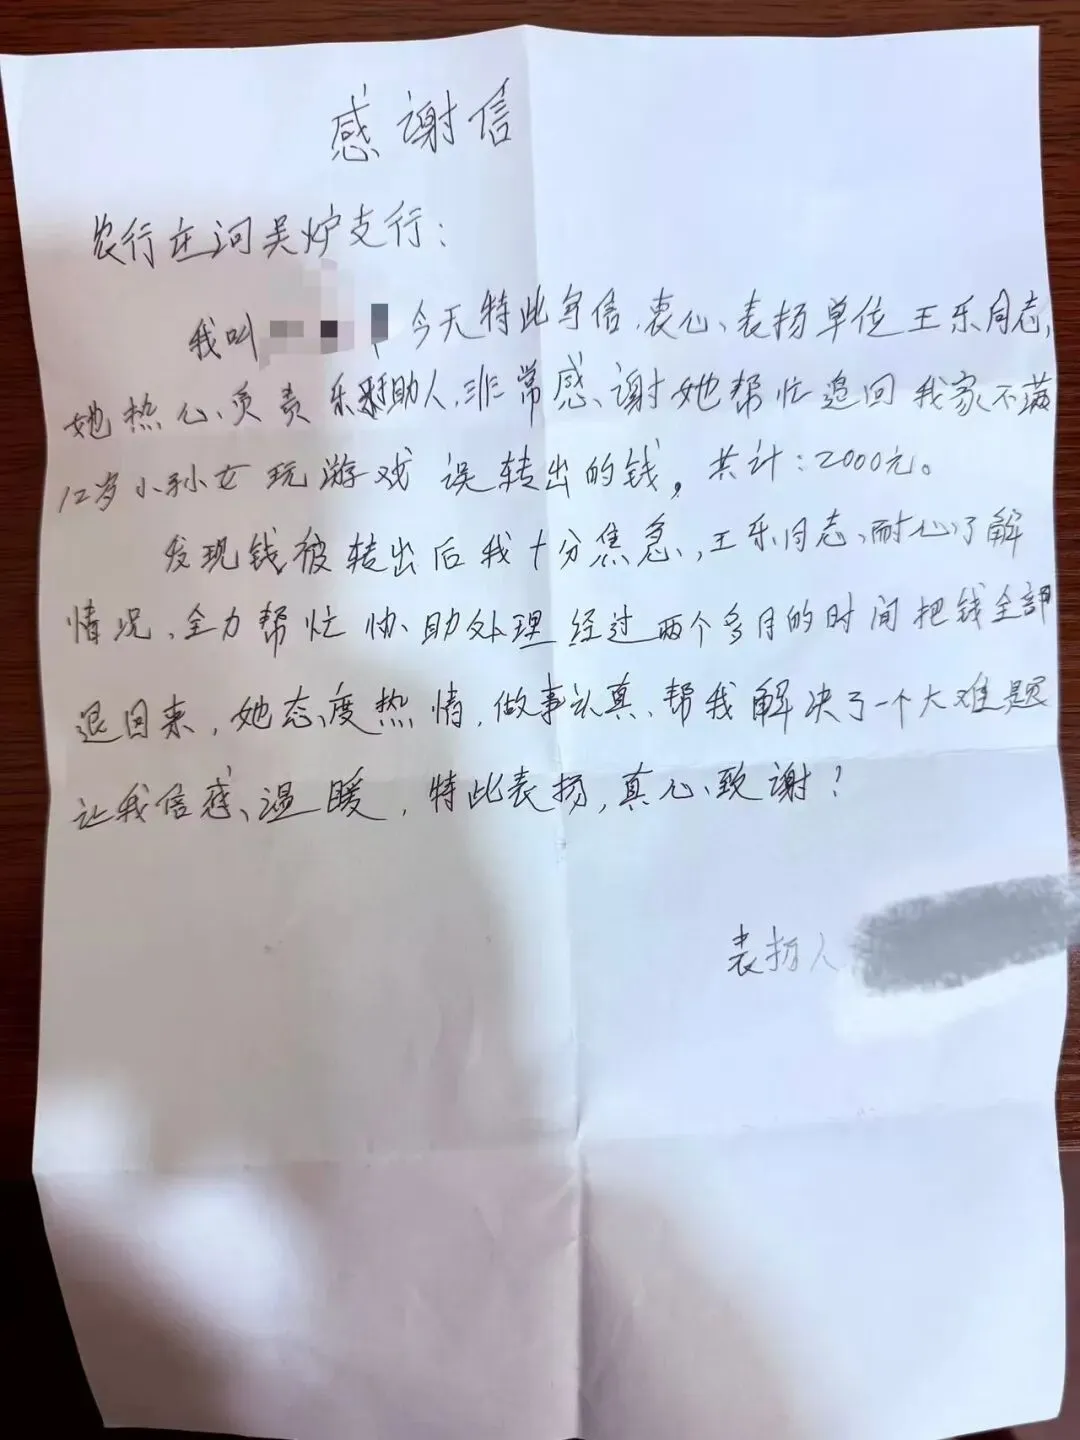 感谢信
农行庄河吴炉支行：
我叫 今天特此写信.衷心、表扬单位王乐同志,
她热心、负责乐助人.非常感谢她帮忙追回我家不满
12岁小孙女玩游戏误转出的钱，共计：2000元。
发现钱被转出后我十分焦急、王乐同志、耐心了解
情况、全力帮忙协助处理经过两个多月的时间把钱全部
退回来，她态度热情，做事认真、帮我解决了一个大难题
让我倍感、温暖，特此表扬，真心致谢！
表扬人